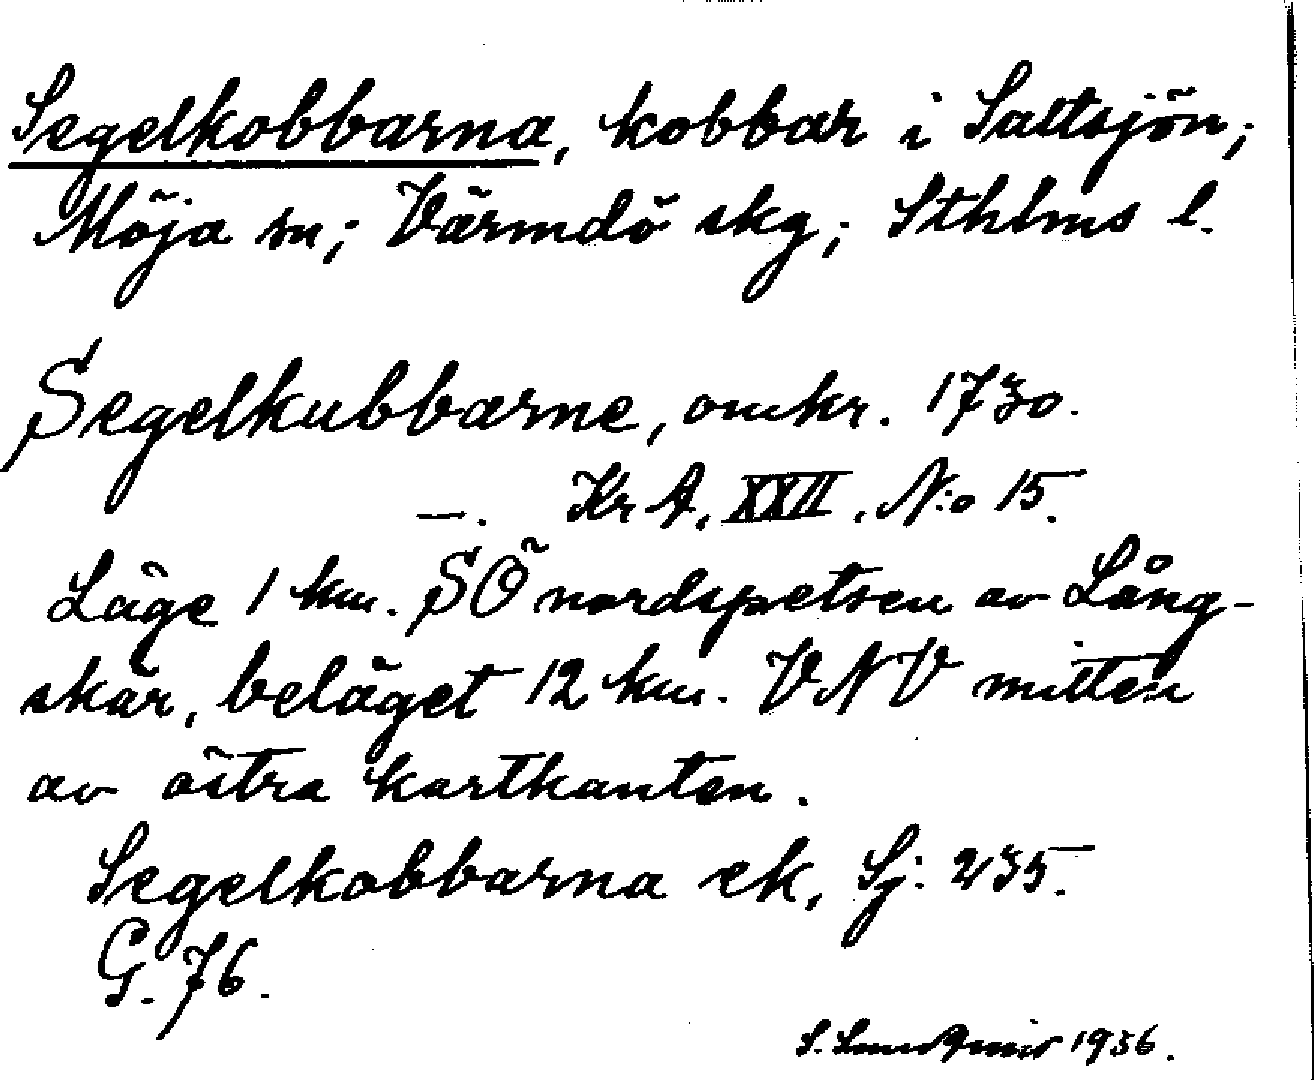 Segelkobbarna, kobbar i Saltsjön;
Möja sn; Värmdö skg; Sthlms l.
Segelkubbarne, omkr. 1730.
—. Kr A, XXII, N:o 15.
Läge 1 km. SÖ nordspetsen av Lång-
skär, beläget 12 km. VNV mitten
av östra kartkanten.
Segelkobbarna ek, Sj: 235.
G. 76.
S. 1936.